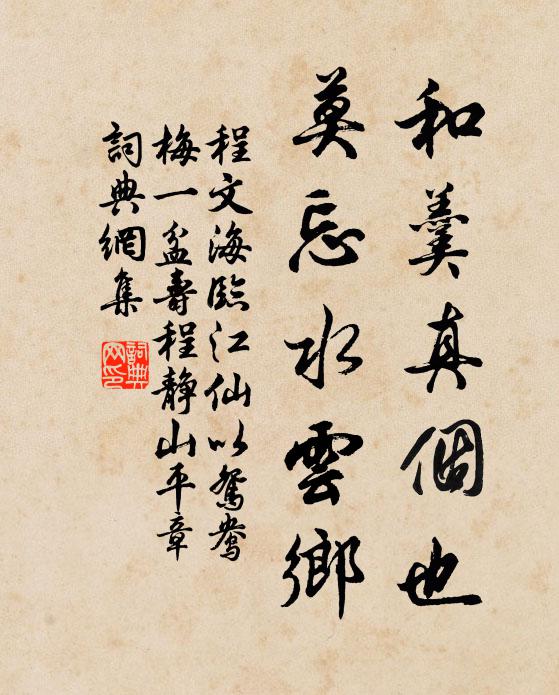 和羹真個也
莫忘水雲鄉
程文海臨江仙以鴛鴦
梅一盆壽程靜山平章
詞典網集
詞典網印